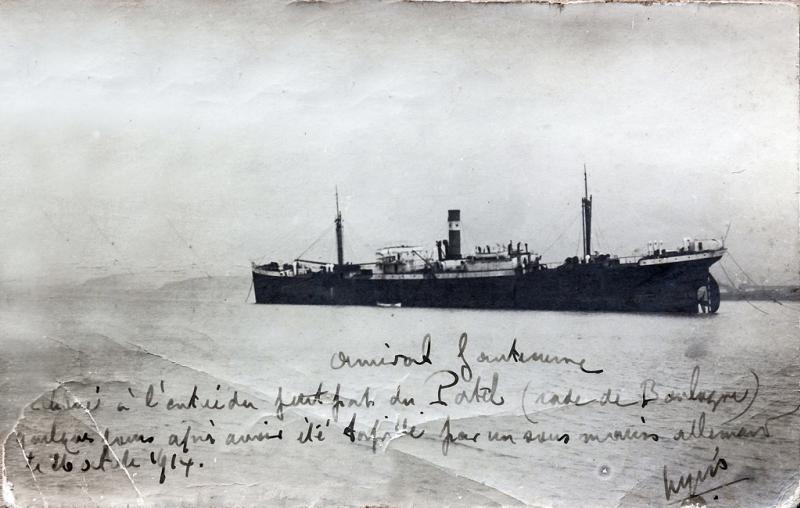 amiral Ganteaume
échoué à l'entrée du petit port du Portel (rade de Boulogne)
quelques jours après avoir été torpillé par un sous marin allemand
le 26 octobre 1914.